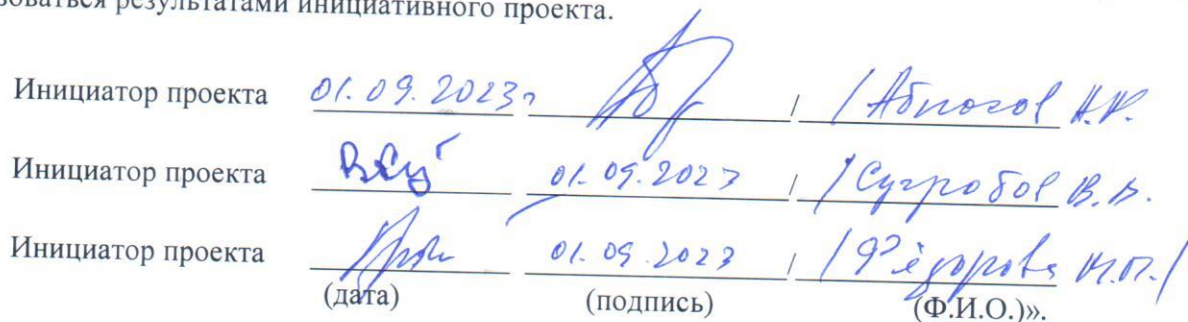 зоваться результатами инициативного проекта.
Инициатор проекта 01.09.2023г / /
Инициатор проекта 01.09.2023 / / Сугробов В.В.
Инициатор проекта 01.09.2023 / / Фёдорова М.П. /
(дата) (подпись) (Ф.И.О.)».